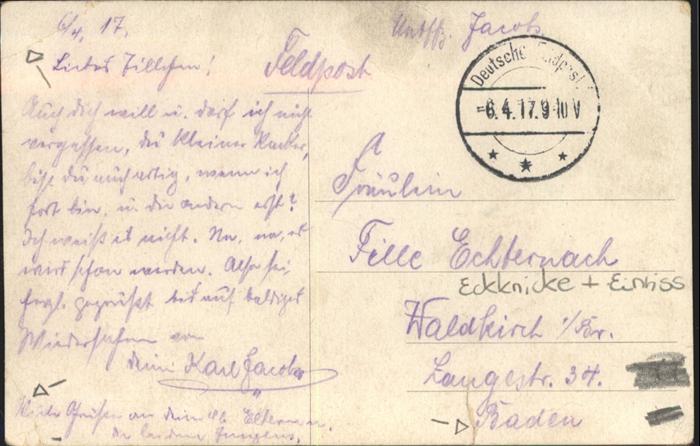 6/4. 17.
Liebes Tillchen!
Auch Dich will u. darf ich nicht
vergessen, du kleiner Racker,
bist du auch artig, wenn ich
fort bin, u. die andern erst?
Ich weiß es nicht. Na, na, es
wird schon werden. Also sei
herzl. gegrüßt bis auf baldiges
Wiedersehen von
Deinem Karl Jacobs
Viele Grüßen an Deine lb. Eltern u.
die beiden Jungens.
Feldpost
Untffz. Jacobs
Deutsche Feldpost
-6.4.17.9-10V
Fräulein
Tille Echternach
Eckknicke + Einriss
Waldkirch i/Br.
Langestr. 34.
Baden